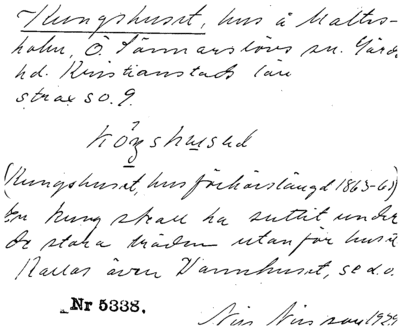 Kungshuset, hus å Maltes-
holm, Ö. Sönnarslövs sn. Gärds
hd. Kristianstads län
strax so. 9.
kőŋshusəd
(Kungshuset, husförhörslängd 1863-65)
En kung skall ha suttit under
de stora träden utanför huset
Kallas även Vannhuset, se d.o.
Nr 5338.
Nils Nilsson 1929